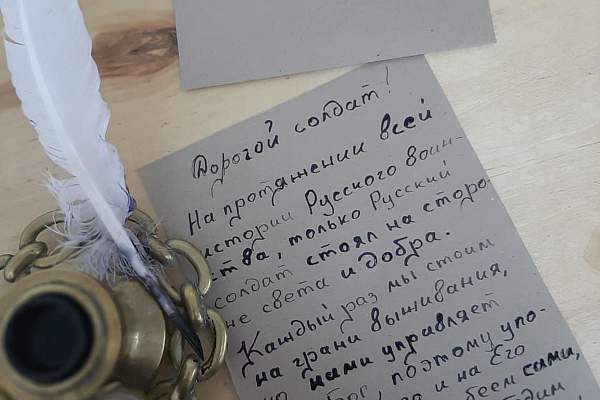 Дорогой солдат!
На протяжении всей
истории Русского воин-
ства, только Русский
солдат стоял на сторо-
не света и добра.
Каждый раз мы стоим
на грани выживания,
нами управляет
Бог, поэтому упо-
и на Его
сами,